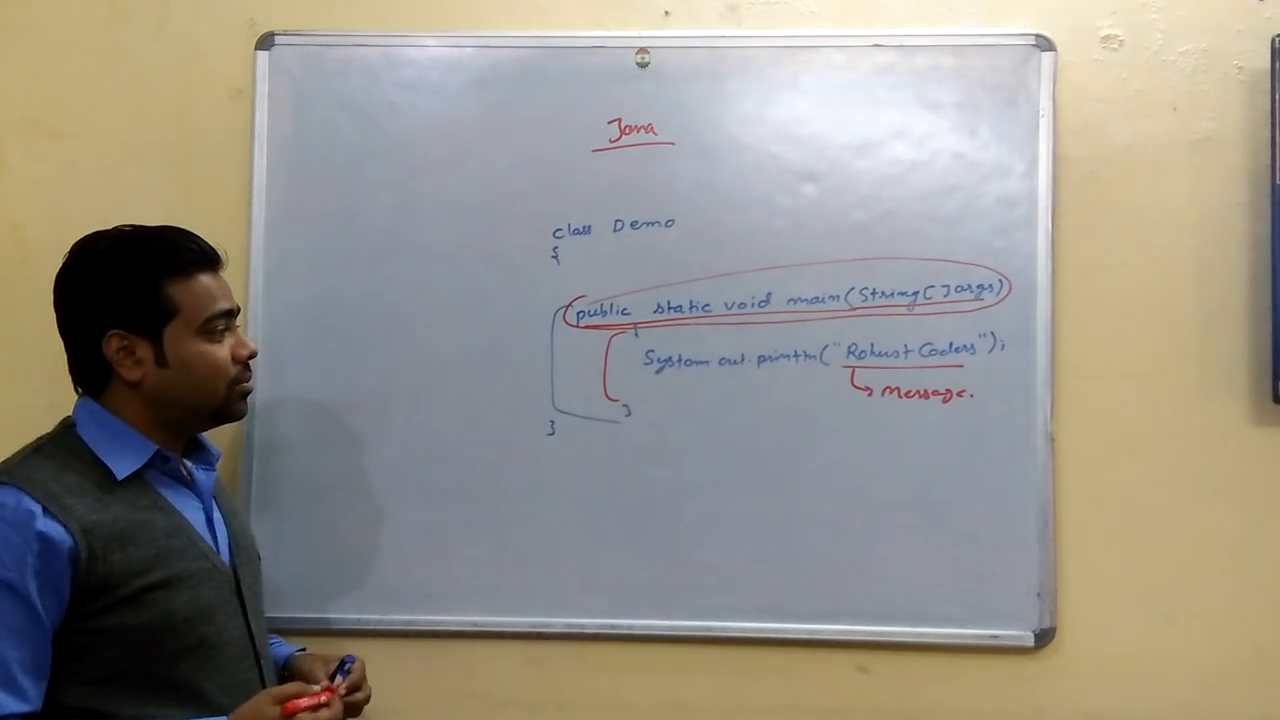 Java
class Demo
{
public static void main(String[] args)
{
System.out.println("Robust Coders");
Message.
}
}